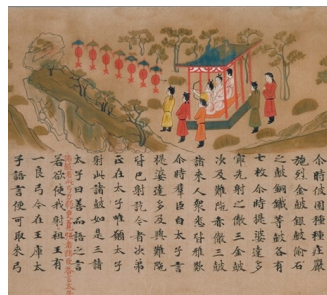 尒時彼園種種莊嚴
施列金鼓銀鼓鍮石
之鼓銅鐵等鼓各有
七枚尒時提婆達多
冣先射之徹三金鼓
次及難陁亦徹三鼓
諸来人衆悉皆雅歎
尒時羣臣白太子言
提婆達多及與難陁
皆已射訖今者次第
正在太子唯願太子
射此諸鼓如是三請
太子曰善而語之言
若欲使我射祖王有
一良弓今在王庫太
子語言便可取来弓